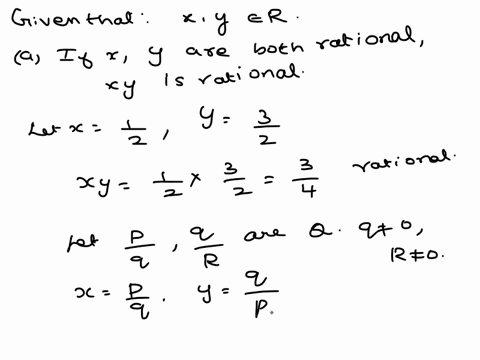 Given that: x, y ∈ R.
(a) If x, y are both rational,
xy is rational.
Let x = 1/2, y = 3/2
xy = 1/2 × 3/2 = 3/4 rational.
Let P/q, q/R are Q. q≠0,
R≠0.
x = P/q. y = q/P.